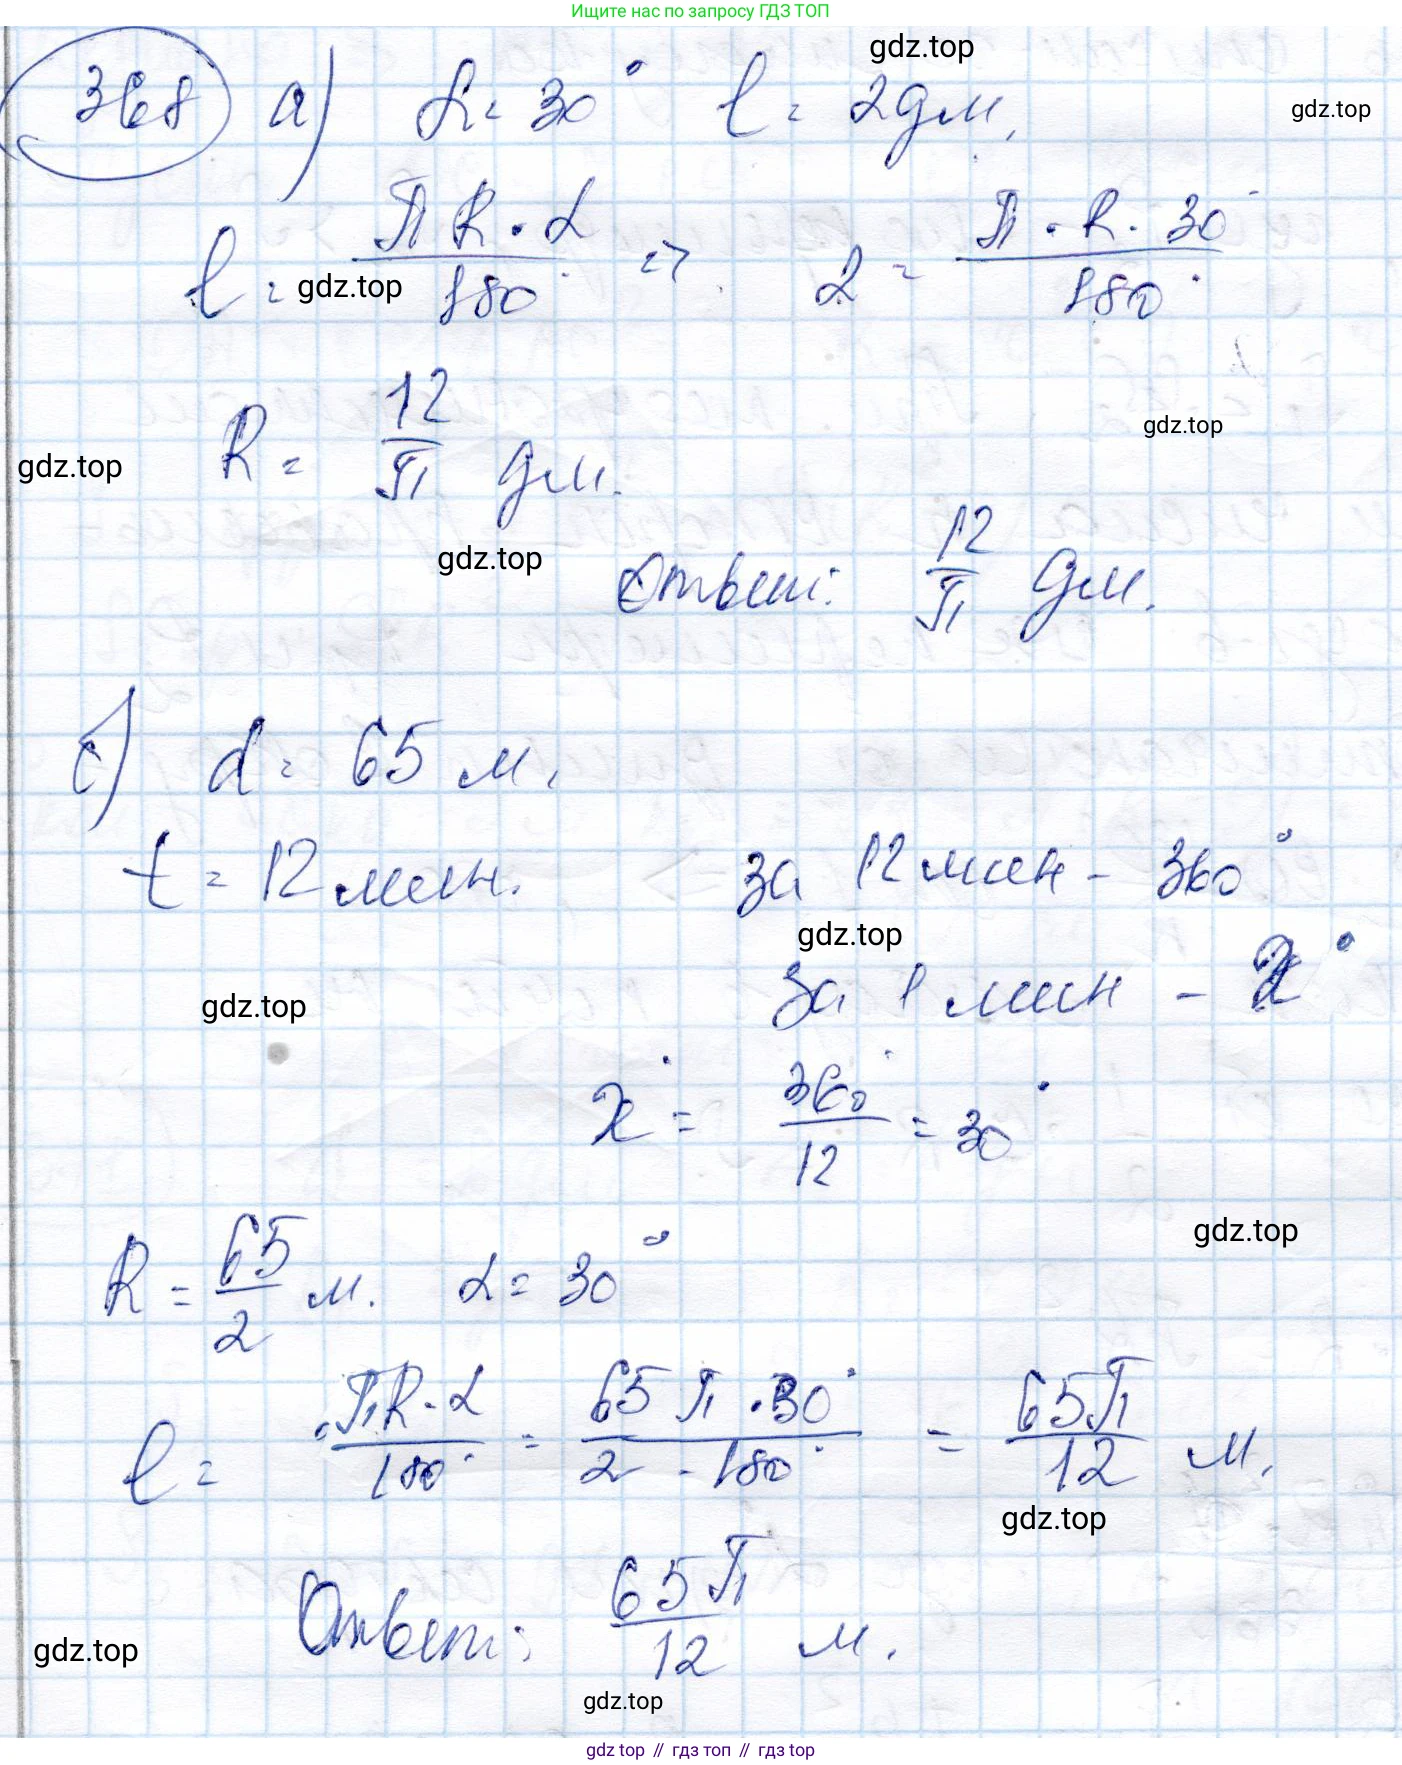 Ищите нас по запросу ГДЗ ТОП
gdz.top
368 а) α = 30° l = 2дм.
gdz.top
l = πR · α / 180° => 2 = π · R · 30° / 180°
gdz.top
R = 12/π дм.
gdz.top
gdz.top
gdz.top
Ответ: 12/π дм.
б) d = 65 м.
t = 12 мин. за 12 мин - 360°
gdz.top
за 1 мин - x°
gdz.top
x° = 360°/12 = 30°
gdz.top
R = 65/2 м. α = 30°
l = πR · α / 180° = 65 π · 30° / 2 · 180° = 65π / 12 м.
gdz.top
Ответ: 65π / 12 м.
gdz.top
gdz.top
gdz top // гдз топ // gdz top